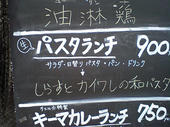 油淋鶏
パスタランチ 900
サラダ・日替りパスタ・パン・ドリンク
しらすとカイワレの和パスタ
キーマカレーランチ 750